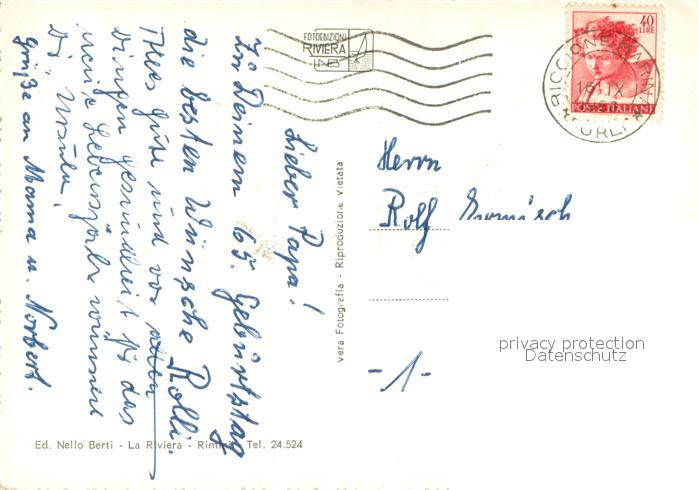 Lieber Papa!
Zu Deinem 65. Geburtstag
die besten Wünsche Rolli.
Alles gute und vor allen
Dingen Gesundheit für das
neue Lebensjahr wünschen
Dir, Ursula,
Grüße an Mama u. Norbert.
vera Fotografia - Riproduzione vietata
Herrn
Rolf
-1-
FOTOEDIZIONI
RIVIERA
40
LIRE
POSTE ITALIANE
RICCIONE MARINA
16. IX
(FORLI)
privacy protection
Datenschutz
Ed. Nello Berti - La Riviera - Rimini - Tel. 24.524